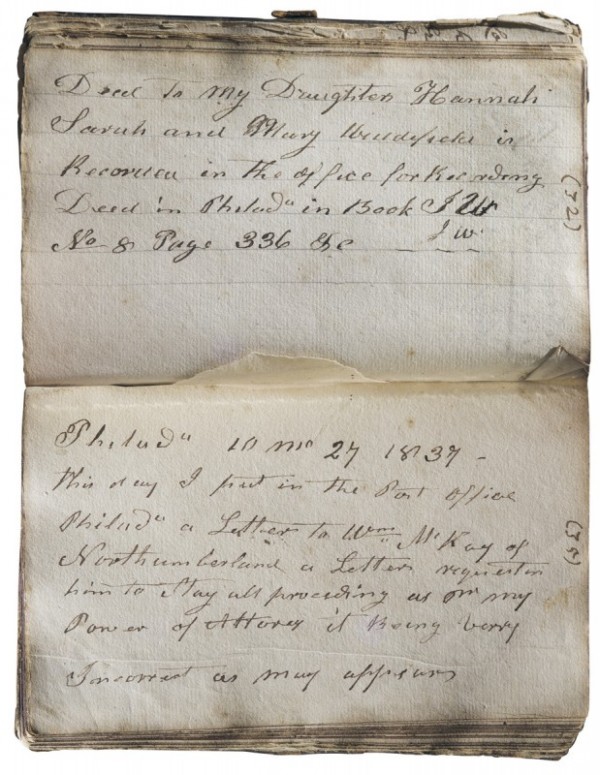 Deed to my Daughters Hannah
Sarah and Mary is
Recorded in the office for Recording
Deed in Philada in Book I W
I W.
No 8 Page 336 &c
(32)
Philada 10 mo 27 1837 -
this day I put in the Post office
Philada a Letters to Wm McKay of
Northumberland a Letters requesten
him to Stay all proceding as on my
Power of Attorey it Being verry
Incorrect as may appears